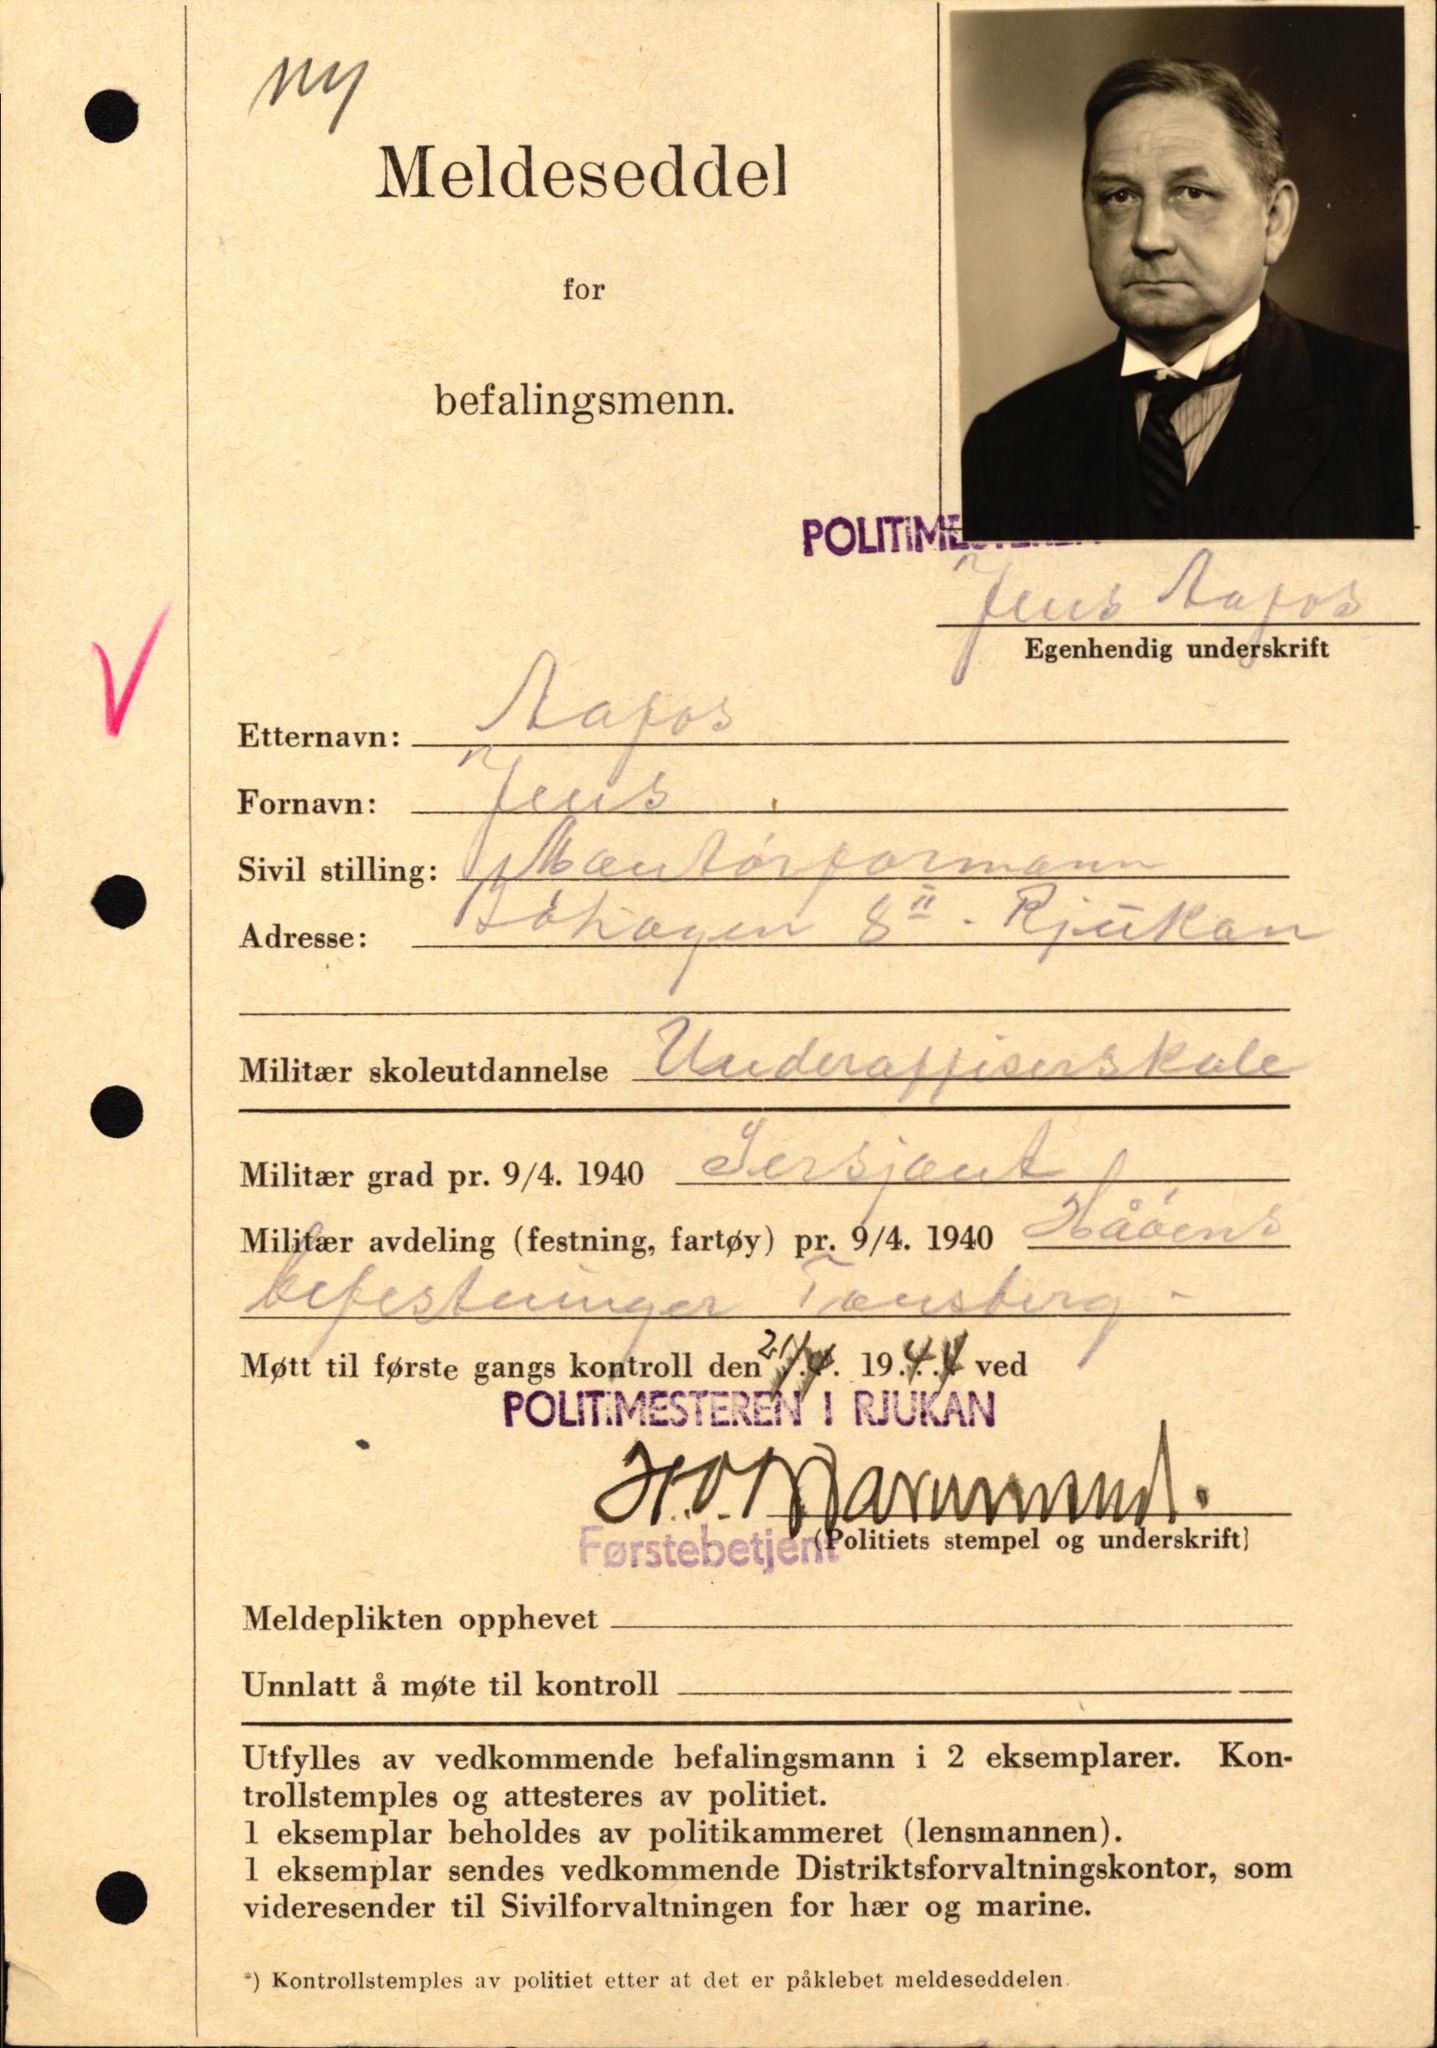 ny
Meldeseddel
for
befalingsmenn.
POLITIMESTEREN I RJUKAN
Jens Aafos
Egenhendig underskrift
Etternavn: Aafos
Fornavn: Jens
Sivil stilling: Montørformann
Adresse: 8 II - Rjukan
Militær skoleutdannelse Underoffiserskole
Militær grad pr. 9/4. 1940 Sersjant
Militær avdeling (festning, fartøy) pr. 9/4. 1940 Håøens
befestninger Tønsberg -
Møtt til første gangs kontroll den 19 ved
POLITIMESTEREN I RJUKAN
Førstebetjent
(Politiets stempel og underskrift)
Meldeplikten opphevet
Unnlatt å møte til kontroll
Utfylles av vedkommende befalingsmann i 2 eksemplarer. Kon-
trollstemples og attesteres av politiet.
1 eksemplar beholdes av politikammeret (lensmannen).
1 eksemplar sendes vedkommende Distriktsforvaltningskontor, som
videresender til Sivilforvaltningen for hær og marine.
*) Kontrollstemples av politiet etter at det er påklebet meldeseddelen.